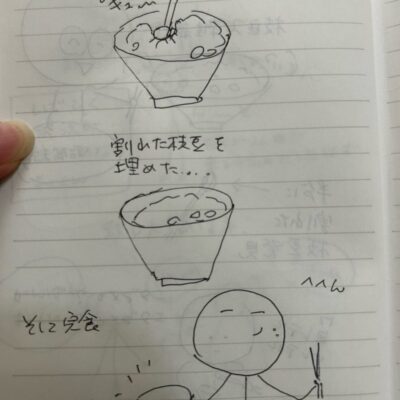 割れた枝豆を
埋めた....
そして完食
へへん